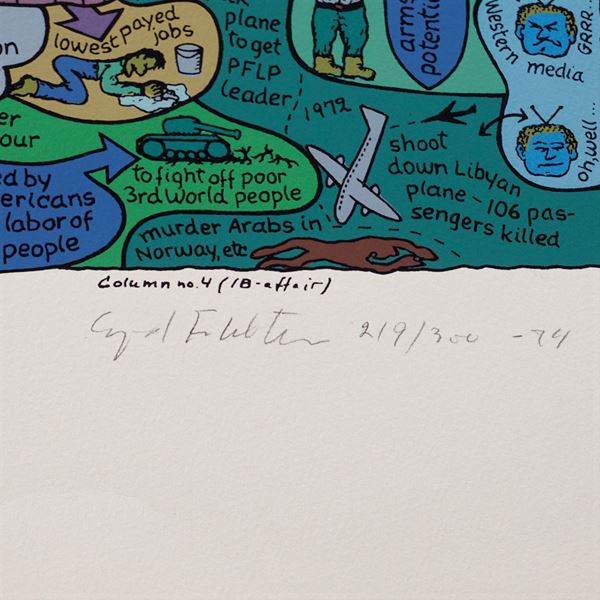 lowest payed
jobs
plane
to get
PFLP
leader
1972
arms
potenti
Western media
GRRR...
oh, well...
on
er
our
ed by
ericans
labor of
people
to fight off poor
3rd world people
shoot
down Libyan
plane – 106 pas-
sengers killed
murder Arabs in
Norway, etc
Column no. 4 (IB-affair)
219/300 -74